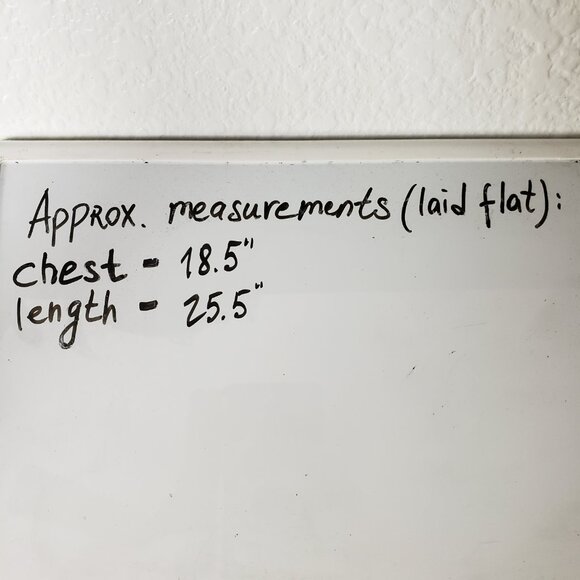 Approx. measurements (laid flat):
chest - 18.5"
length - 25.5"